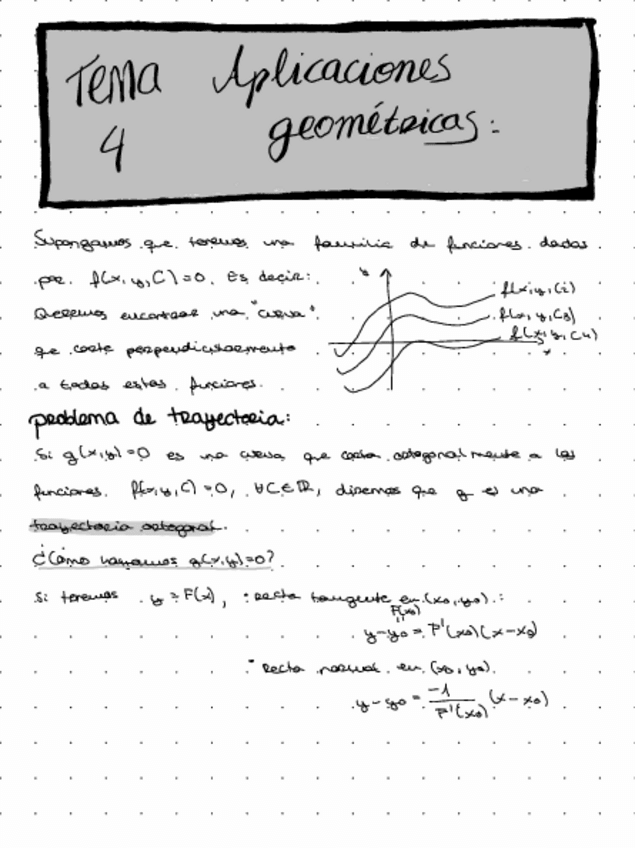 TEMA 4 Aplicaciones
geométricas:
Supongamos que tenemos una familia de funciones dadas
por f(x,y,C)=0. Es decir:
Queremos encontrar una "curva"
que corte perpendicularmente
a todas estas funciones.
y
f(x,y,C
f(x,y,C3)
f(x,y,C4)
x
problema de trayectoria:
Si g(x,y)=0 es una curva que corta ortogonalmente a las
funciones f(x,y,C)=0, ∀C∈ℝ, diremos que g es una
trayectoria ortogonal.
¿Cómo hayamos g(x,y)=0?
Si tenemos y=F(x), · recta tangente en (x0,y0):
F(x0)
y-y0 = F'(x0)(x-x0)
· recta normal en (x0,y0).
y-y0 = -1/F'(x0) (x-x0)